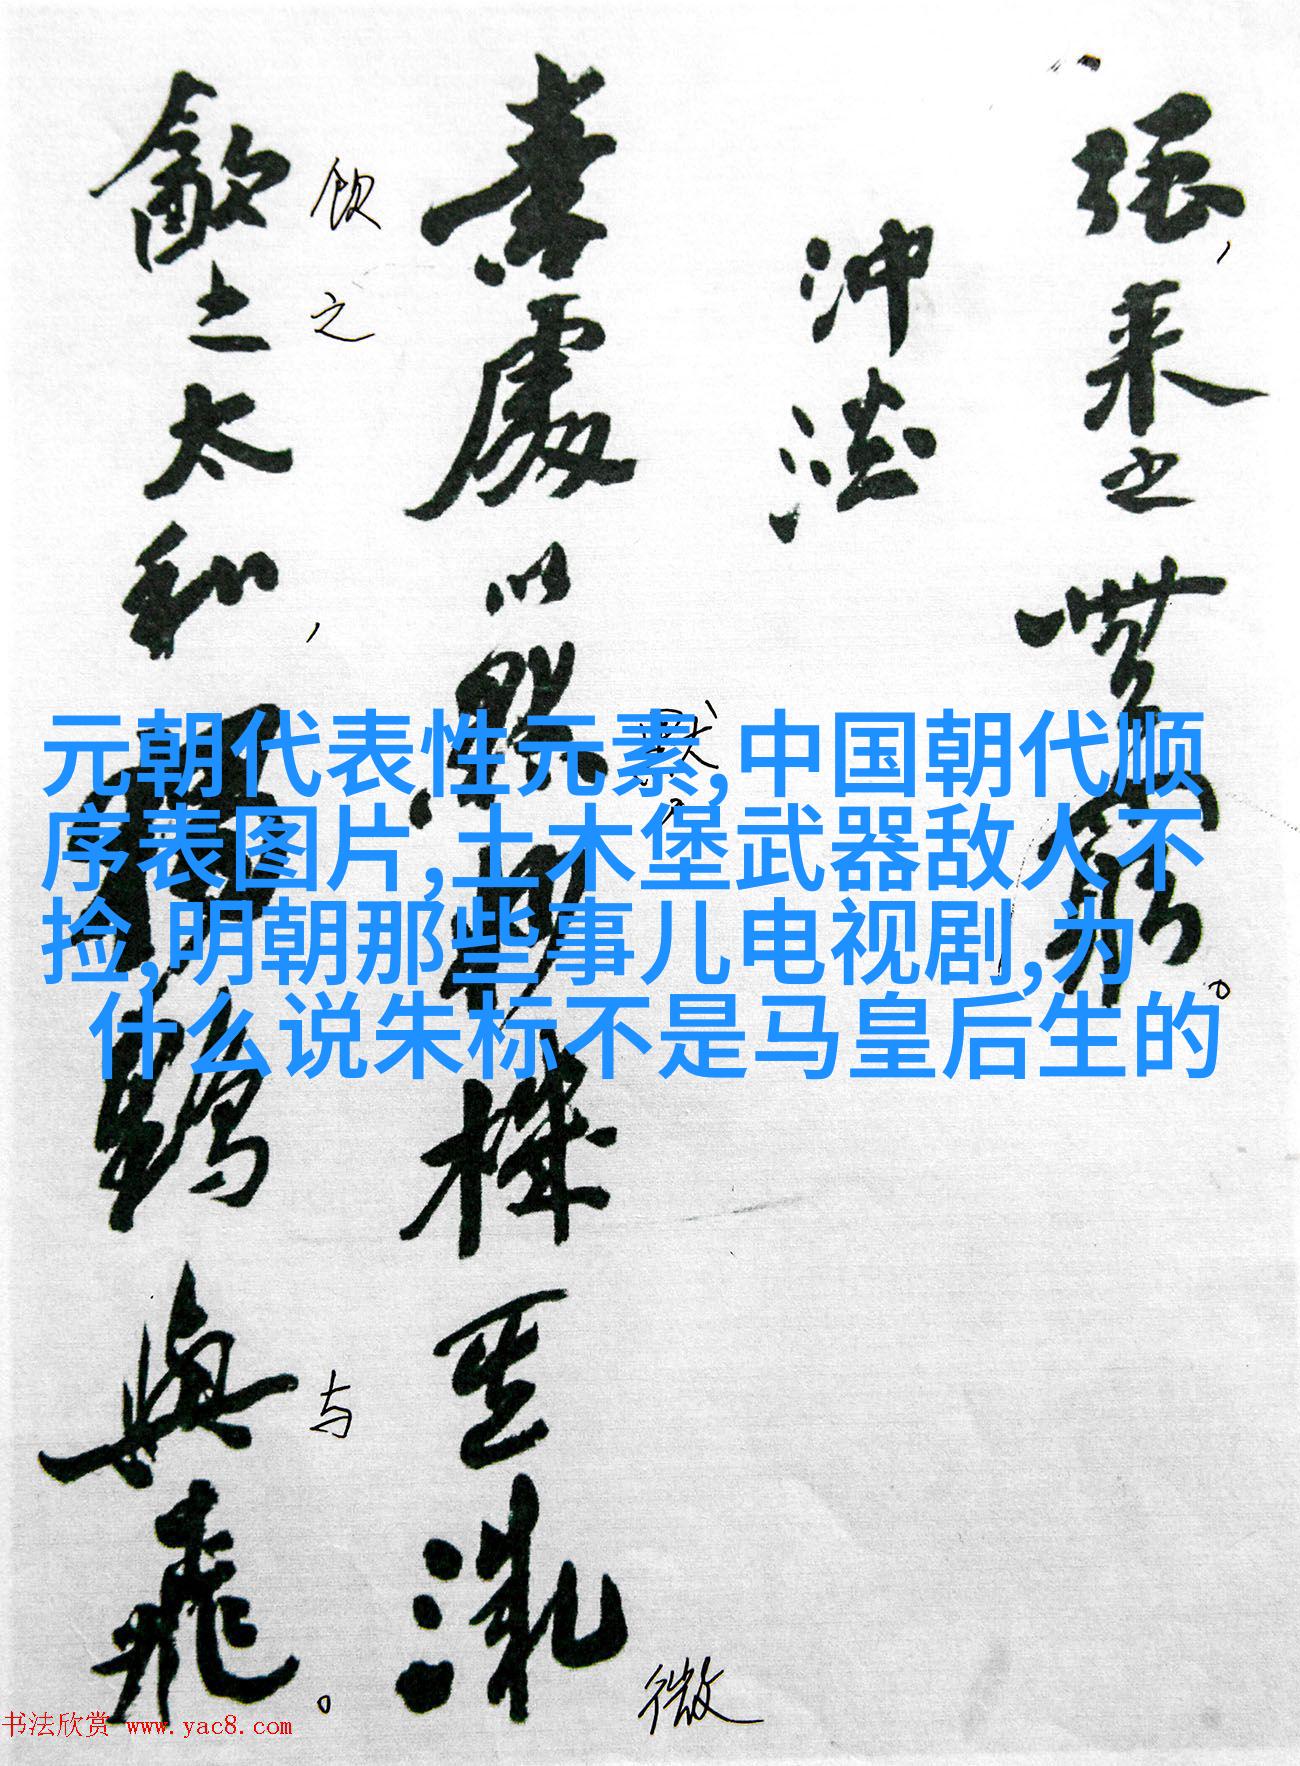 强,来之无穷。
冲淡
素处以默,妙机其微
饮之太和,独鹤与飞。
饮之
与
默。
微
元朝代表性元素,中国朝代顺
序表图片,土木堡武器敌人不
捡,明朝那些事儿电视剧,为
什么说朱标不是马皇后生的
书法欣赏 www.yac8.com